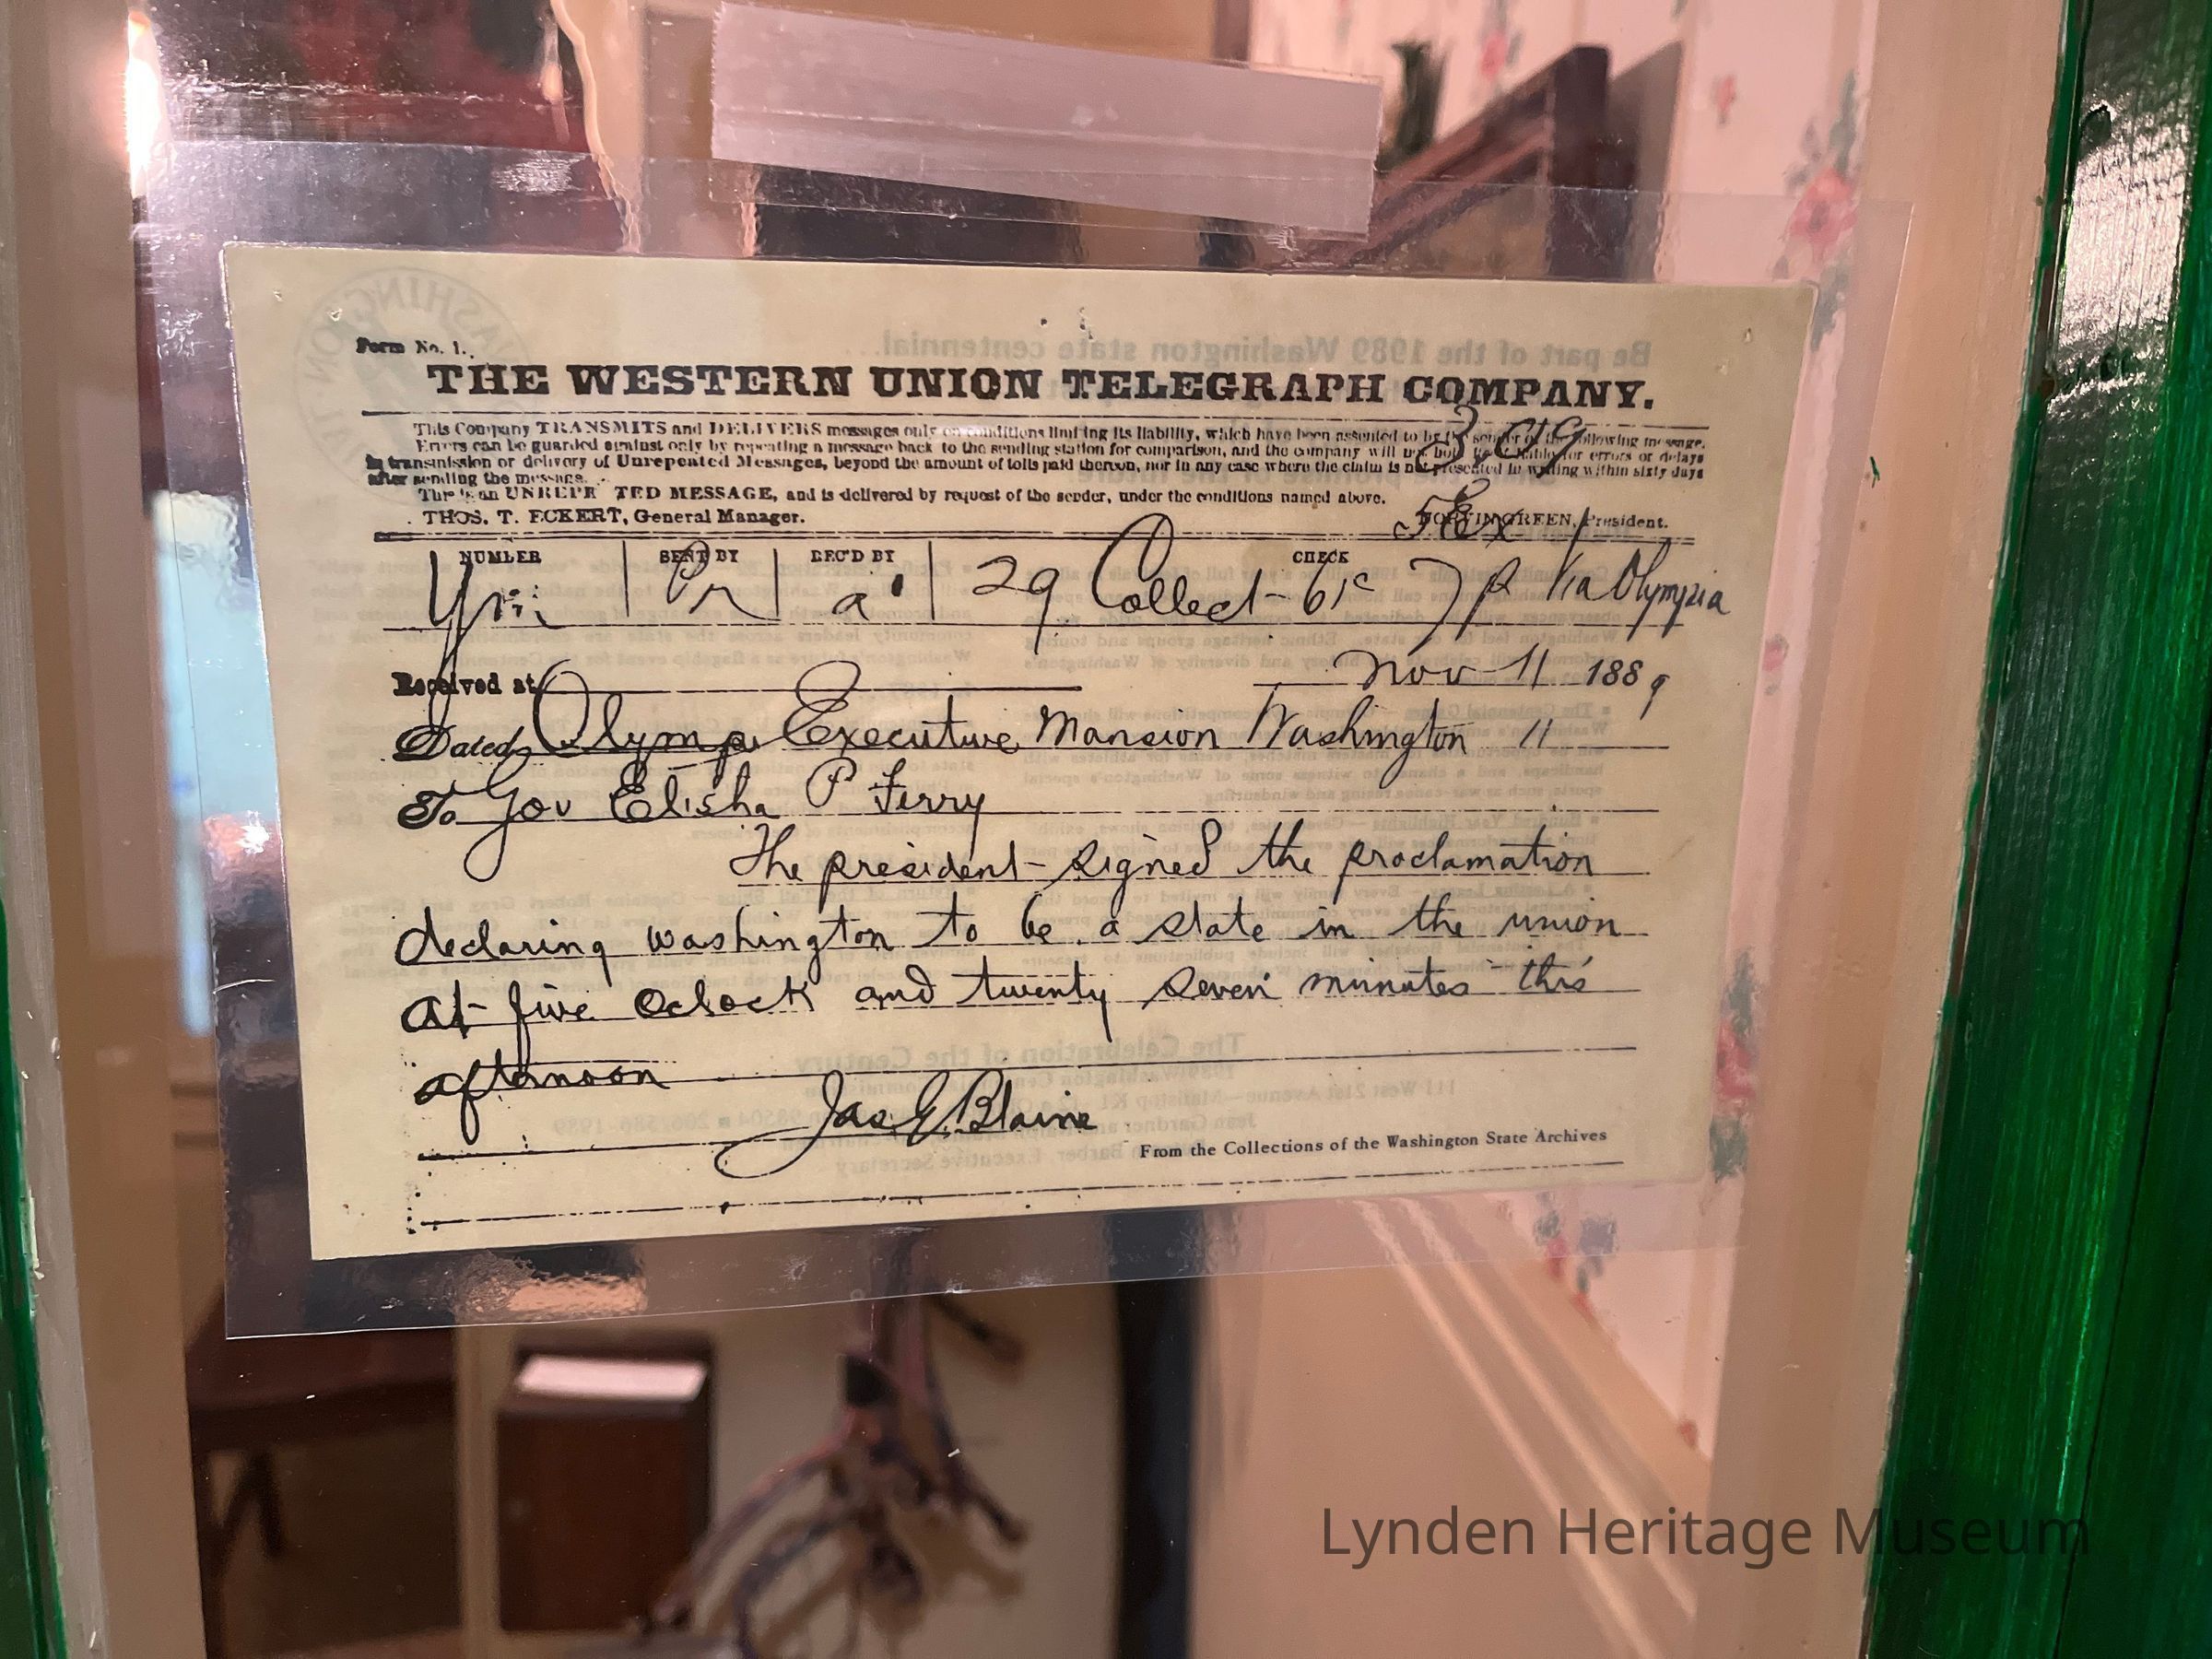 Form No. 1.
THE WESTERN UNION TELEGRAPH COMPANY.
This Company TRANSMITS and DELIVERS messages only on conditions limiting its liability, which have been assented to by the sender of the following message.
Errors can be guarded against only by repeating a message back to the sending station for comparison, and the company will not hold itself liable for errors or delays
in transmission or delivery of Unrepeated Messages, beyond the amount of tolls paid thereon, nor in any case where the claim is not presented in writing within sixty days
after sending the message.
This is an UNREPEATED MESSAGE, and is delivered by request of the sender, under the conditions named above.
THOS. T. ECKERT, General Manager. NORVIN GREEN, President.
NUMBER SENT BY REC'D BY CHECK
29 Collect 61c Via Olympia
Received at Nov 11 1889
Dated Olympia Executive Mansion Washington 11
To Gov Elisha P Ferry
The president signed the proclamation
declaring washington to be a state in the union
at five oclock and twenty seven minutes this
afternoon
Jas G Blaine
From the Collections of the Washington State Archives
Lynden Heritage Museum